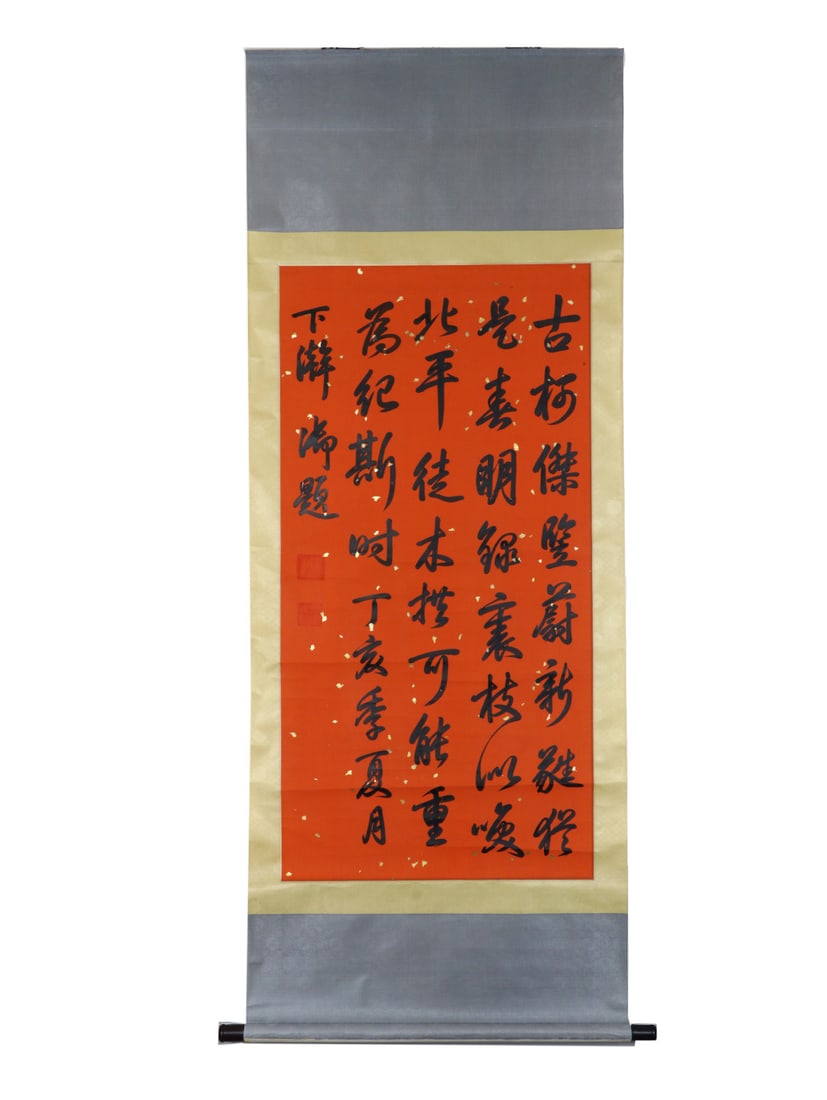 古柯傑豎蔚新蕤猶
是春明錄裏枝似喚
北平徒木拱可能重
為紀斯时丁亥季夏月
下澣御題